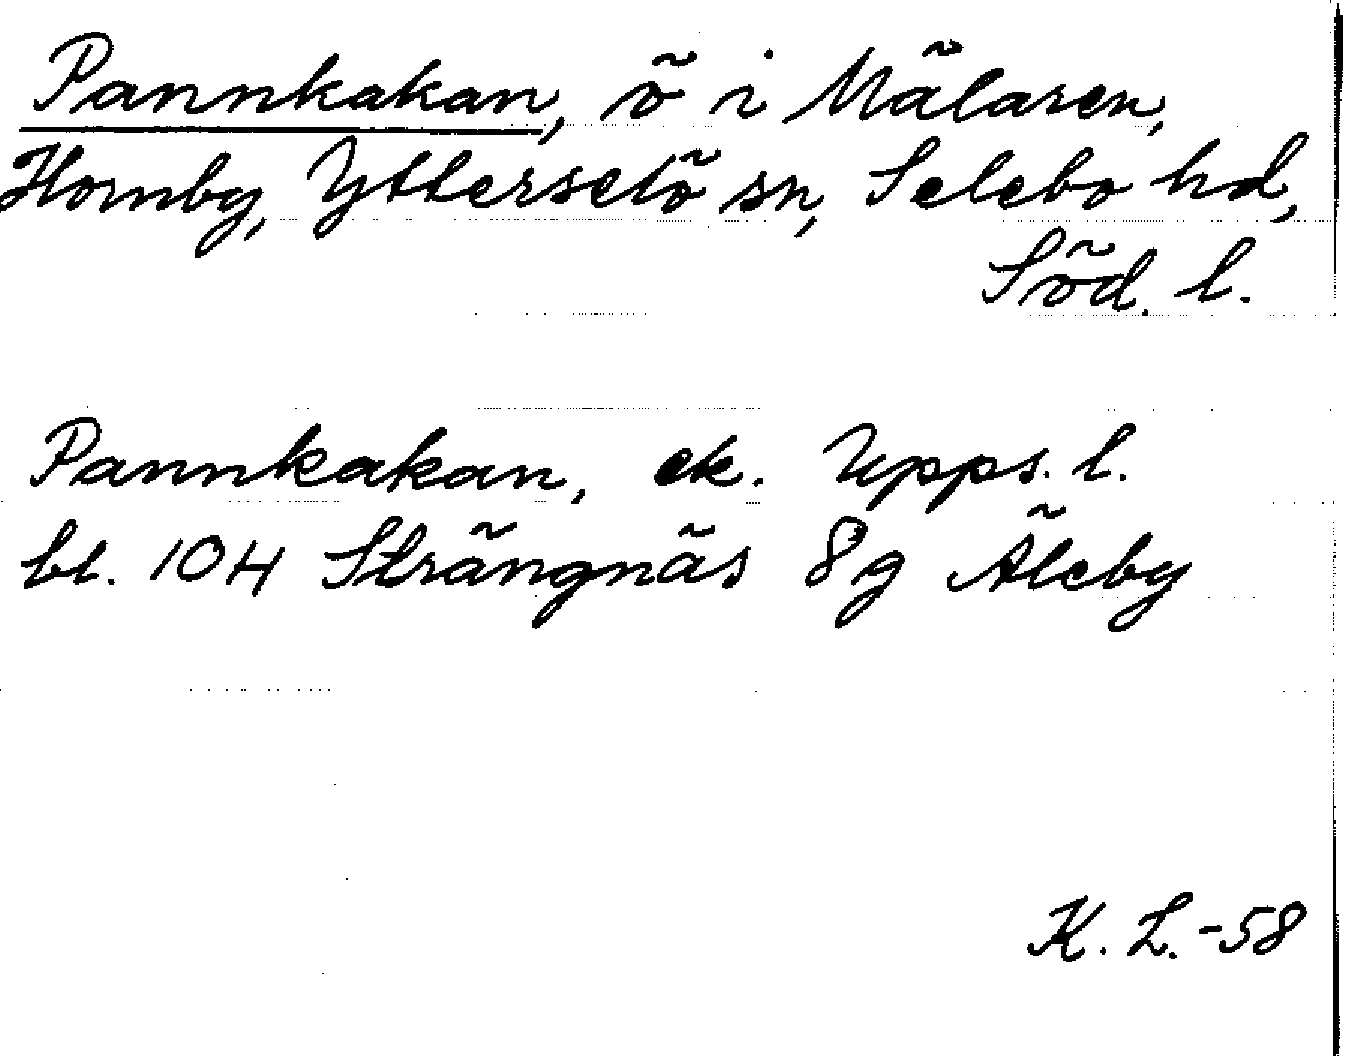 Pannkakan, ö i Mälaren,
Hornby, Ytterselö sn, Selebo hd,
Söd. l.
Pannkakan, ek. Upps. l.
bl. 104 Strängnäs 8g Äleby
K. L. -58